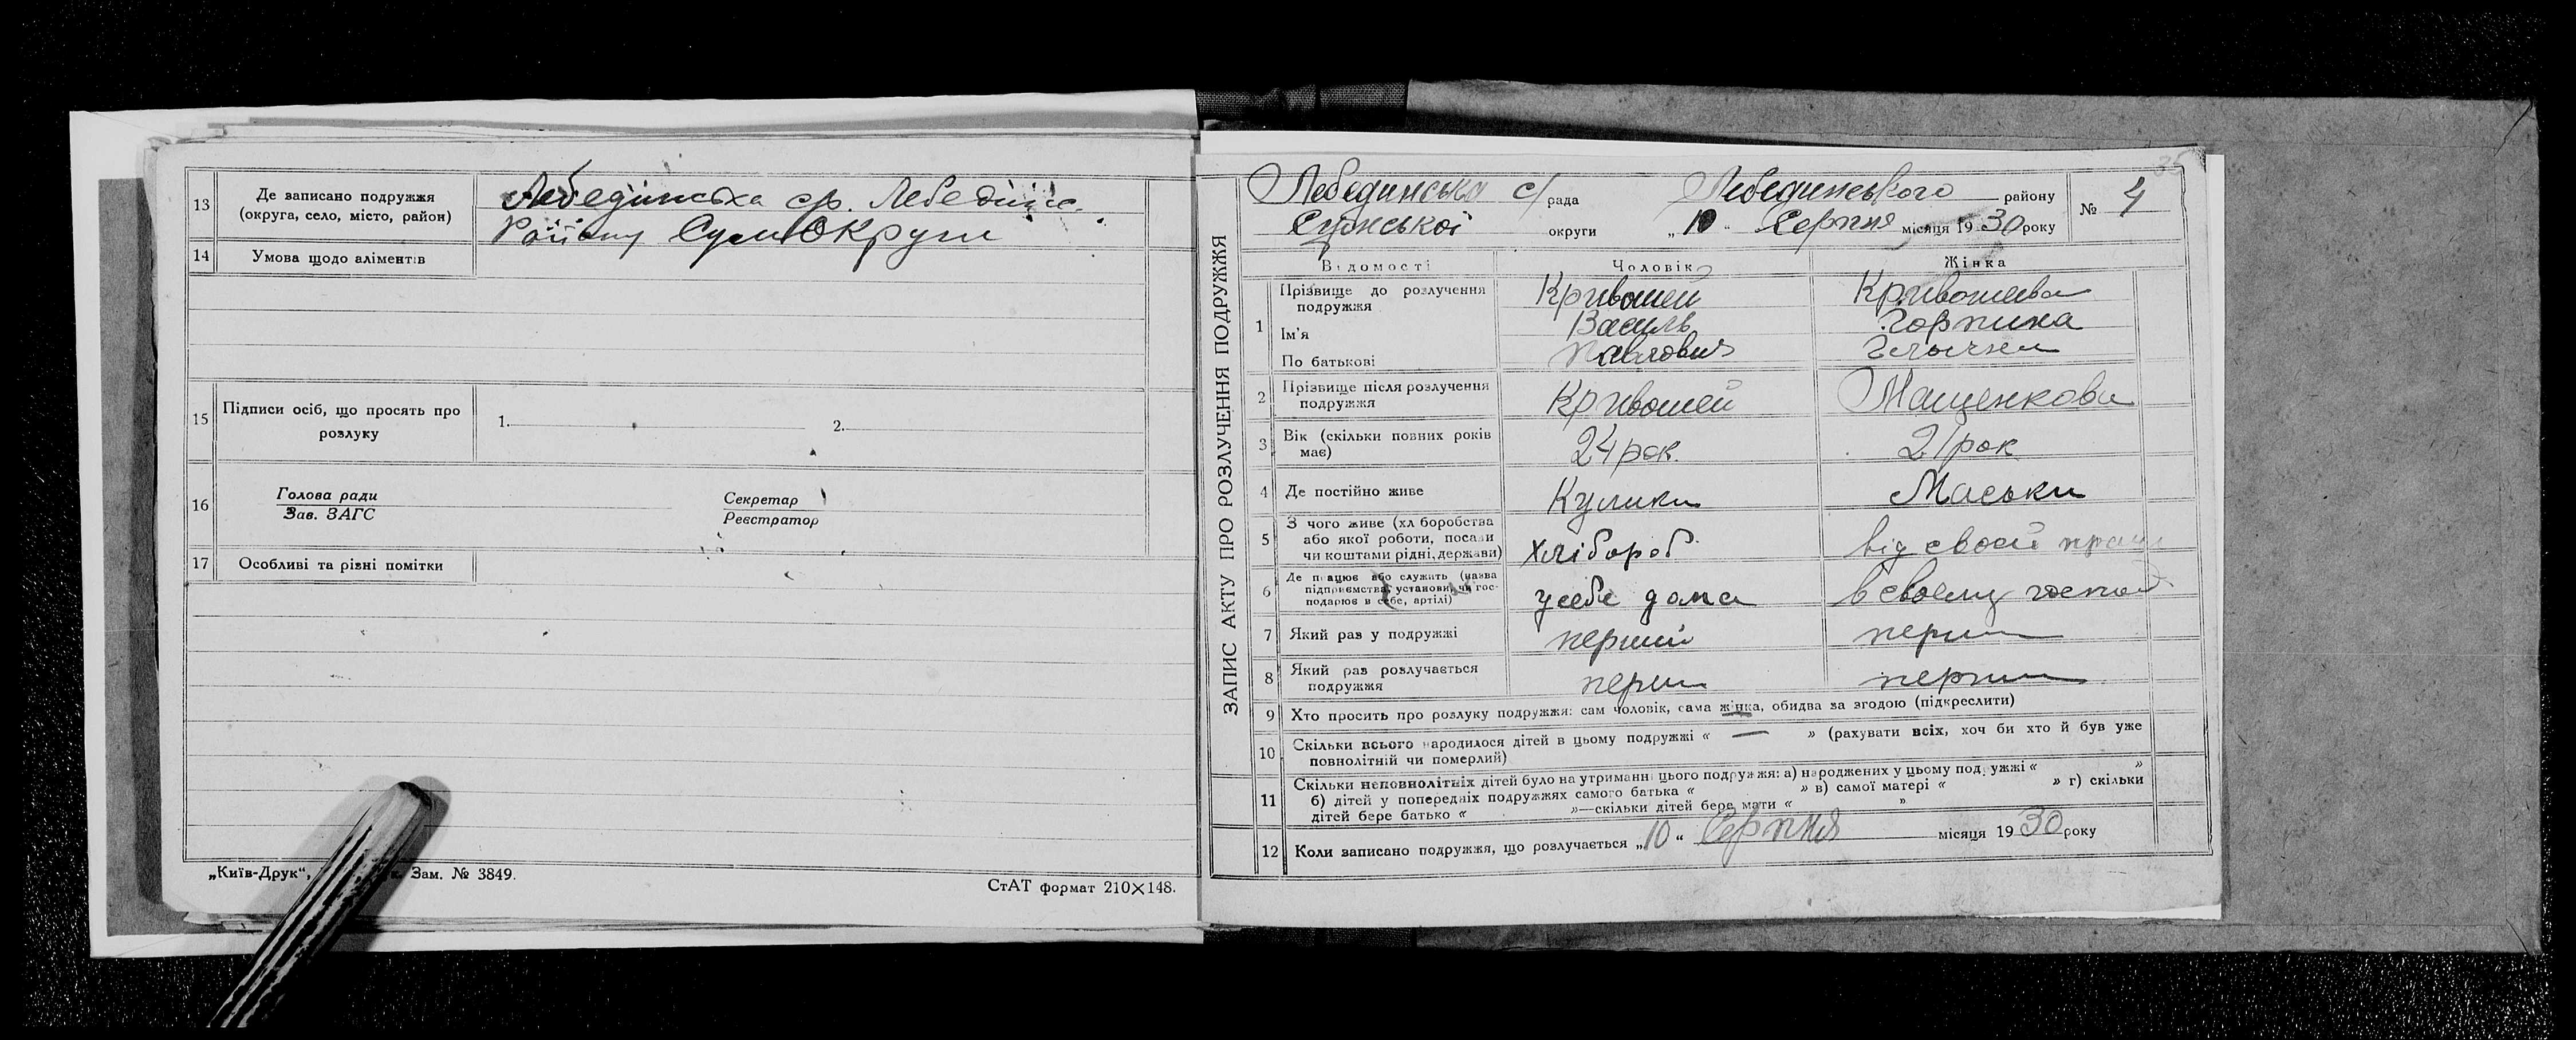 13 Де записано подружжя (округа, село, місто, район)
Лебединська с/р. Лебединс.
Району Сум Округи
14 Умова щодо аліментів
15 Підписи осіб, що просять про розлуку 1. 2.
16 Голова ради Секретар
Зав. ЗАГС Реєстратор
17 Особливі та різні помітки
„Київ-Друк“, Зам. № 3849.
СтАТ формат 210×148.
ЗАПИС АКТУ ПРО РОЗЛУЧЕННЯ ПОДРУЖЖЯ
35
Лебединська с/рада Лебединського району № 4
Сумської округи „10“ Серпня місяця 1930 року
Відомості Чоловік Жінка
1 Прізвище до розлучення подружжя Кривошей Кривошеєва
Ім'я Василь Горпина
По батькові Павлович
2 Прізвище після розлучення подружжя Кривошей Мащенкова
3 Вік (скільки повних років має) 24 рок. 21 рок
4 Де постійно живе Кулики Маськи
5 З чого живе (хліборобства або якої роботи, посади чи коштами рідні, держави) хлібороб від своєї праці
6 Де працює або служить (назва підприємства, установи, чи господарює в себе, артілі) у себе дома в своєму госпо
7 Який раз у подружжі перший перш
8 Який раз розлучається подружжя перш перш
9 Хто просить про розлуку подружжя: сам чоловік, сама жінка, обидва за згодою (підкреслити)
10 Скільки всього народилося дітей в цьому подружжі « — » (рахувати всіх, хоч би хто й був уже
повнолітній чи померлий)
11 Скільки неповнолітніх дітей було на утриманні цього подружжя: а) народжених у цьому подружжі « »
б) дітей у попередніх подружжях самого батька « » в) самої матері « » г) скільки
дітей бере батько « »—скільки дітей бере мати « »
12 Коли записано подружжя, що розлучається „10“ Серпня місяця 1930 року